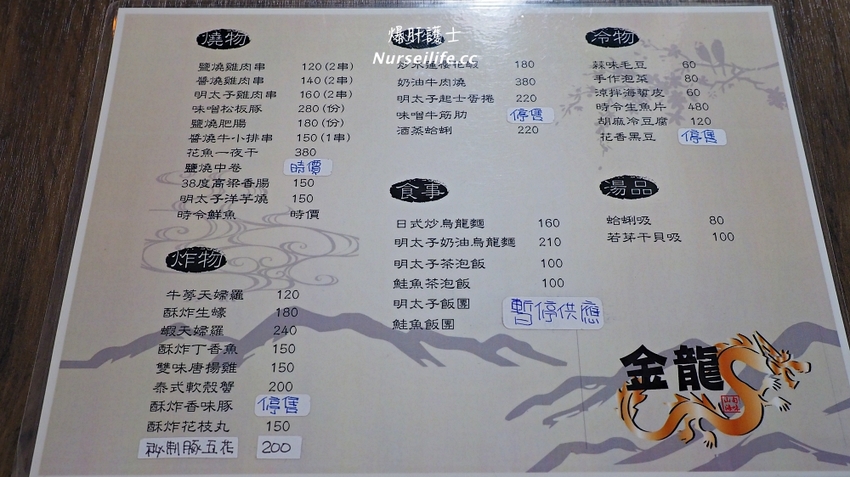 燒物
鹽燒雞肉串 120 (2串)
醬燒雞肉串 140 (2串)
明太子雞肉串 160 (2串)
味噌松板豚 280 (份)
鹽燒肥腸 180 (份)
醬燒牛小排串 150 (1串)
花魚一夜干 380
鹽燒中卷 時價
38度高粱香腸 150
明太子洋芋燒 150
時令鮮魚 時價
炸物
牛蒡天婦羅 120
酥炸生蠔 180
蝦天婦羅 240
酥炸丁香魚 150
雙味唐揚雞 150
泰式軟殼蟹 200
酥炸香味豚 停售
酥炸花枝丸 150
秘制豚五花 200
爆肝護士
Nurseilife.cc
180
奶油牛肉燒 380
明太子起士蛋捲 220
味噌牛筋肋 停售
酒蒸蛤蜊 220
食事
日式炒烏龍麵 160
明太子奶油烏龍麵 210
明太子茶泡飯 100
鮭魚茶泡飯 100
明太子飯團
鮭魚飯團
暫停供應
冷物
蒜味毛豆 60
手作泡菜 80
涼拌海蜇皮 60
時令生魚片 480
胡麻冷豆腐 120
花香黑豆 停售
湯品
蛤蜊吸 80
若芽干貝吸 100
金龍